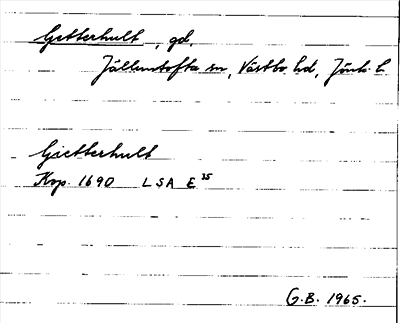 Getterhult, gd,
Jälluntofta sn, Västbo hd, Jönk. l.
Gietterhult
Kop. 1690 LSA E 35
G.B. 1965.